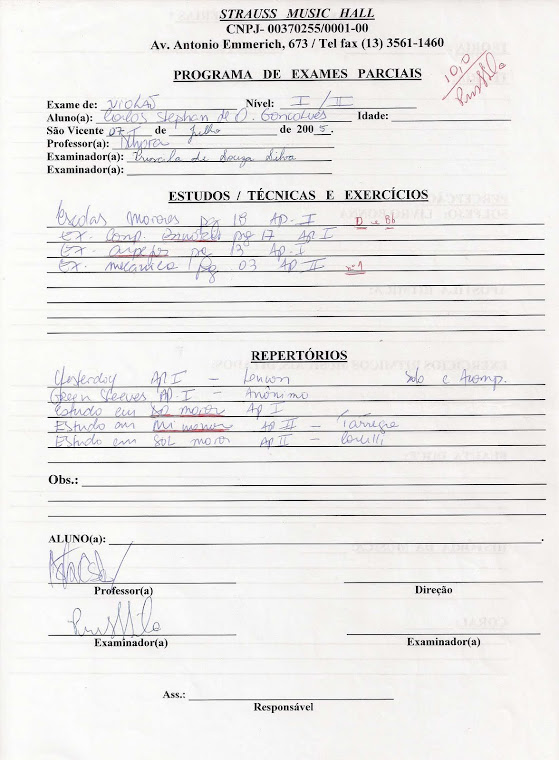 STRAUSS MUSIC HALL
CNPJ- 00370255/0001-00
Av. Antonio Emmerich, 673 / Tel fax (13) 3561-1460
10,0
PROGRAMA DE EXAMES PARCIAIS
Exame de: VIOLÃO Nível: I / II
Aluno(a): Carlos Stephan de O. Goncalves Idade:
São Vicente 07 de Julho de 2005.
Professor(a)
Examinador(a): Priscila de Souza Silva
Examinador(a):
ESTUDOS / TÉCNICAS E EXERCÍCIOS
Escalas Maiores pg 18 AP. I D e Bb
Ex. Comp. pg 17 AP. I
Ex. arpejos pg 13 AP. I
Ex. mecânica pg 03 AP II nº 1
REPERTÓRIOS
Yesterday AP. I - Lennon Solo e Acomp.
Green Sleeves AP. I - Anônimo
Estudo em Sol maior AP I
Estudo em Mi menor AP II - Tárrega
Estudo em SOL maior AP II - Carulli
Obs.:
ALUNO(a):
Professor(a) Direção
Examinador(a) Examinador(a)
Ass.:
Responsável